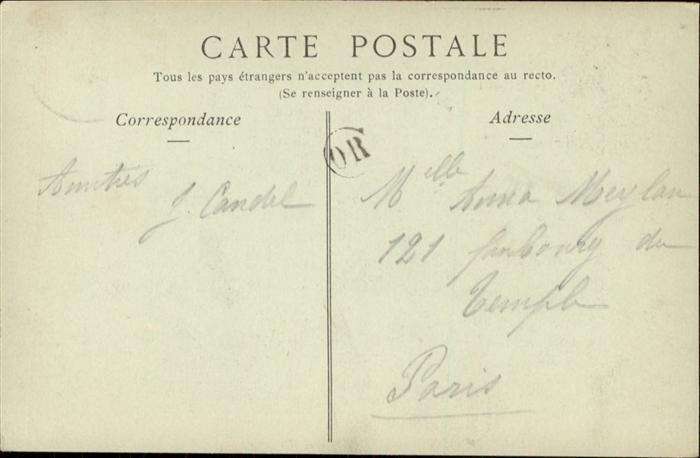 CARTE POSTALE
Tous les pays étrangers n'acceptent pas la correspondance au recto.
(Se renseigner à la Poste).
Correspondance
Amitiés
J. Candel
Adresse
OR
Melle Anna Meylan
121 faubourg du
Temple
Paris